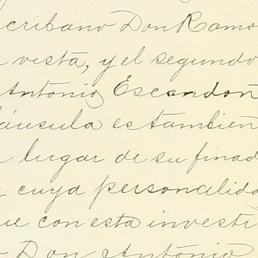 scribano Don Ramo
vista, y el segundo
Antonio Escandon
láusula es tambien
lugar de su finad
cuya personalida
ue con esta investi
Don Antonio